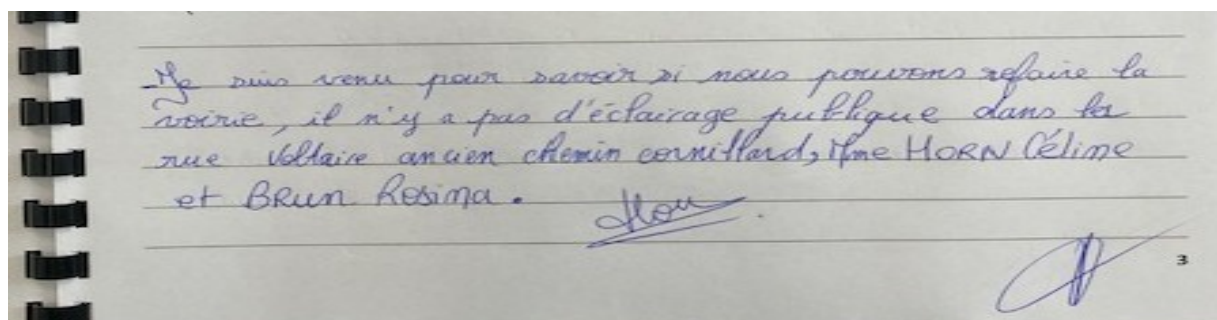 - Je suis venu pour savoir si nous pouvons refaire la
voirie, il n'y a pas d'éclairage publique dans la
rue Voltaire ancien chemin cornillard, Mme HORN Céline
et BRUN Rosima.
3